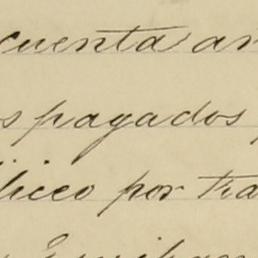 cuenta an
s pagados
lico por tra